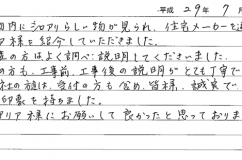 平成 29年 7月
内にシロアリらしい物が見られ、住宅メーカーを通
様を紹介していただきました。
の方はよく調べ、説明してくださいました。
の方も、工事前、工事後の説明がとても丁寧で
社の方は、受付の方も含め、皆様、誠実で
印象を持ちました。
アリア様にお願いして良かったと思っておりま